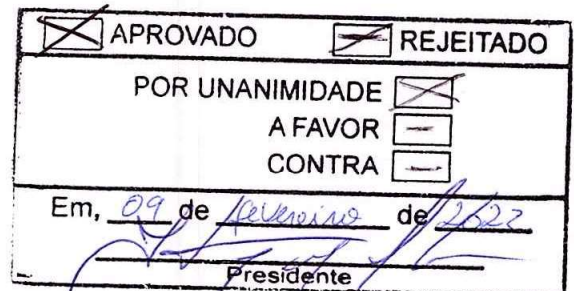 APROVADO REJEITADO
POR UNANIMIDADE
A FAVOR
CONTRA
Em, 09 de fevereiro de
Presidente